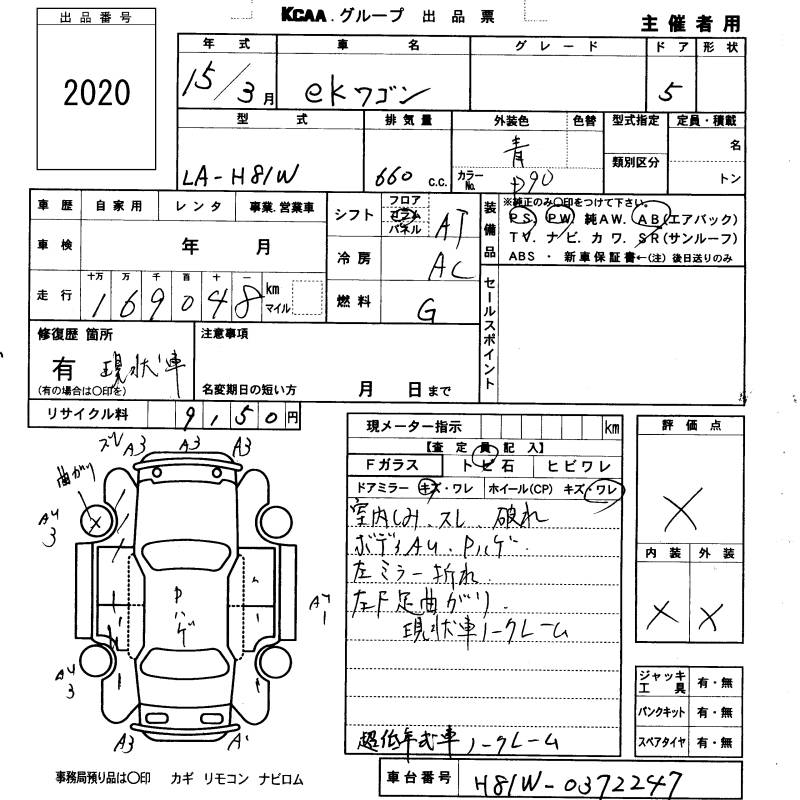 出品番号
2020
KCAA.グループ 出品票
主催者用
年式 車名 グレード ドア 形状
15/3月 ekワゴン 5
型式 排気量 外装色 色替 型式指定 定員・積載
LA-H81W 660 c.c. 青 カラーNo. P90 類別区分 名 トン
車歴 自家用 レンタ 事業.営業車
車検 年 月
走行 十万 万 千 百 十 一
169048 km マイル
シフト フロア コラム パネル AT
冷房 AC
燃料 G
装備品 ※純正のみ○印をつけて下さい。
PS PW 純AW. AB(エアバック)
TV. ナビ. カワ. SR(サンルーフ)
ABS ・ 新車保証書←(注) 後日送りのみ
セールスポイント
修復歴 箇所
有 現状車
(有の場合は○印を)
注意事項
名変期日の短い方 月 日まで
リサイクル料 9,150円
現メーター指示 km
【査定員記入】
Fガラス トビ石 ヒビワレ
ドアミラー キズ・ワレ ホイール(CP) キズ・ワレ
室内しみ.スレ.破れ
ボディAU.Pハゲ.
左ミラー折れ.
左F足曲がり.
現状車ノークレーム
超低年式車ノークレーム
評価点
×
内装 外装
× ×
ジャッキ工具 有・無
パンクキット 有・無
スペアタイヤ 有・無
ズレ A3 A3 A3
曲がり
AU3
Pハゲ
AU3
A3
事務局預り品は○印 カギ リモコン ナビロム
車台番号 H81W-0372247